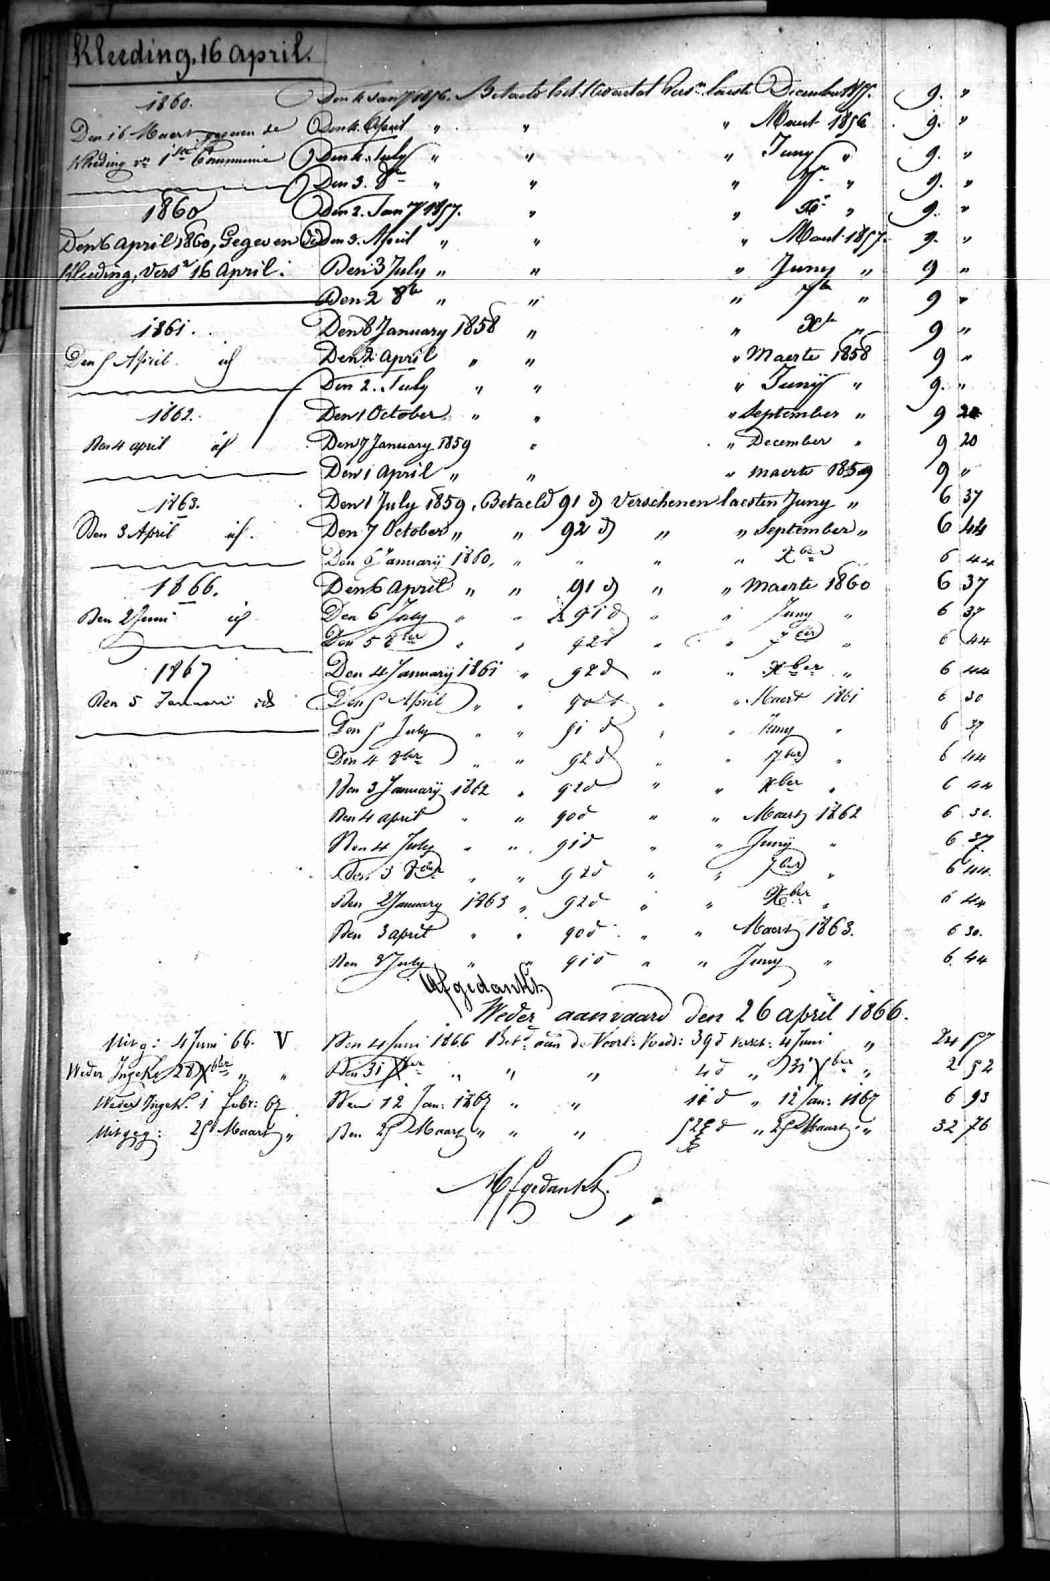 Kleeding, 16 april.
1860.
Den 16 Maert gegeven de
kleeding vr 1ste Communie
1860
Den 6 april 1860, Gegeven de
kleeding, Versn 16 April.
1861.
Den 5 April id
1862.
Den 4 april id
1863.
Den 3 April id.
1866.
Den 2 Juni id
1867
Den 5 Januarii id
Den 4 Jany 1856. Betaeld het Kwartaal Versn laeste December 1855. 9. "
Den 4. April " " " Maert 1856 9. "
Den 4. July " " " Juny " 9. "
Den 3. 8br " " " 7br " 9. "
Den 2. Jany 1857. " " Xr " 9. "
Den 3. April " " " Maert 1857. 9. "
Den 3 July " " " Juny " 9 "
Den 2 8br " " " 7br " 9 "
Den 8 January 1858 " " Xbr " 9 "
Den 2 april " " " Maerte 1858 9 "
Den 2. July " " " Junÿ " 9. "
Den 1 October " " " September " 9 20
Den 7 January 1859 " " December " 9 20
Den 1 april " " " maerte 1859 9 "
Den 1 July 1859, Betaeld 91 d Verschenen laesten Juny " 6 37
Den 7 October " " 92 d " " September " 6 44
Den 6 Januarij 1860, " " " " Xber 6 44
Den 6 april " " 91 d " " maerte 1860 6 37
Den 6 July " " 91 d " " Juny " 6 37
Den 5 8ber " " 92 d " " 7ber " 6 44
Den 4 Januarij 1861 " 92 d " " Xber " 6 44
Den 5 April " " 90 d " " Maert 1861 6 30
Den 5 July " " 91 d " " Juny " 6 37
Den 4 8ber " " 92 d " " 7ber " 6 44
Den 3 Januarij 1862 " 92 d " " Xber " 6 44
Den 4 april " " 90 d " " Maert 1862 6 30.
Den 4 July " " 91 d " " Junij " 6 37
Den 3 8ber " " 92 d " " 7ber " 6 44
Den 2 January 1863 " 92 d " " Xber " 6 44
Den 3 april " " 90 d " " Maert 1863. 6 30.
Den 8 July " " 91 d " " Juny " 6 44
Afgedankt
Weder aanvaard den 26 april 1866.
Uitg: 4 Juni 66. V Den 4 Juni 1866 Betd aan de Voorl: Voedr: 39 d versch: 4 Juni " 24 57
Weder Ingek. 28 Xber " " Den 31 Xber " " " 4 d " 31 Xber " 2 52
Weder Ingek. 1 febr: 67 Den 12 Jan: 1867 " " 11 d " 12 Jan: 1867 6 93
Uitgeg: 25 Maart " Den 25 Maart " " " 52 d " 25 Maart " 32 76
Afgedankt.